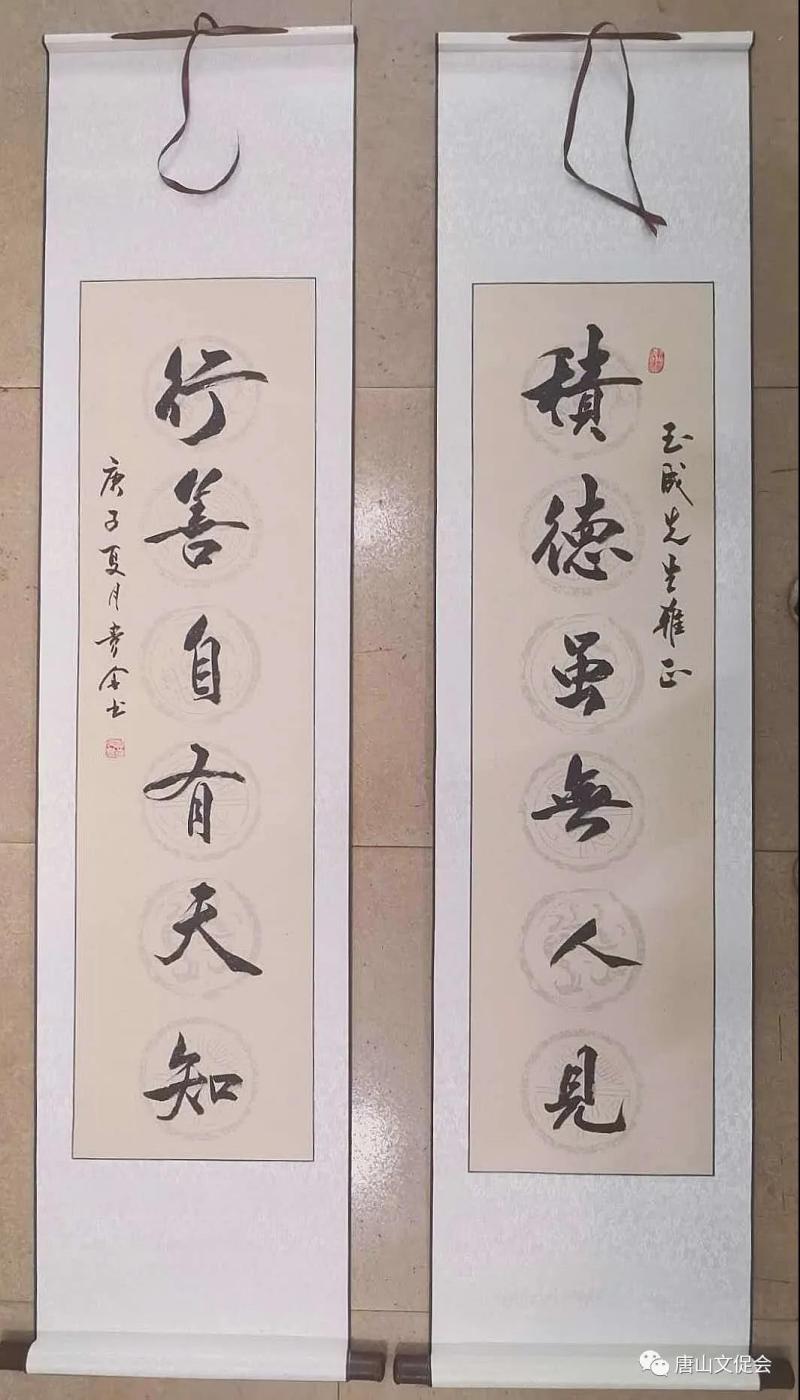 玉成先生雅正
積德虽無人見
行善自有天知
庚子夏月贵全书
唐山文促会